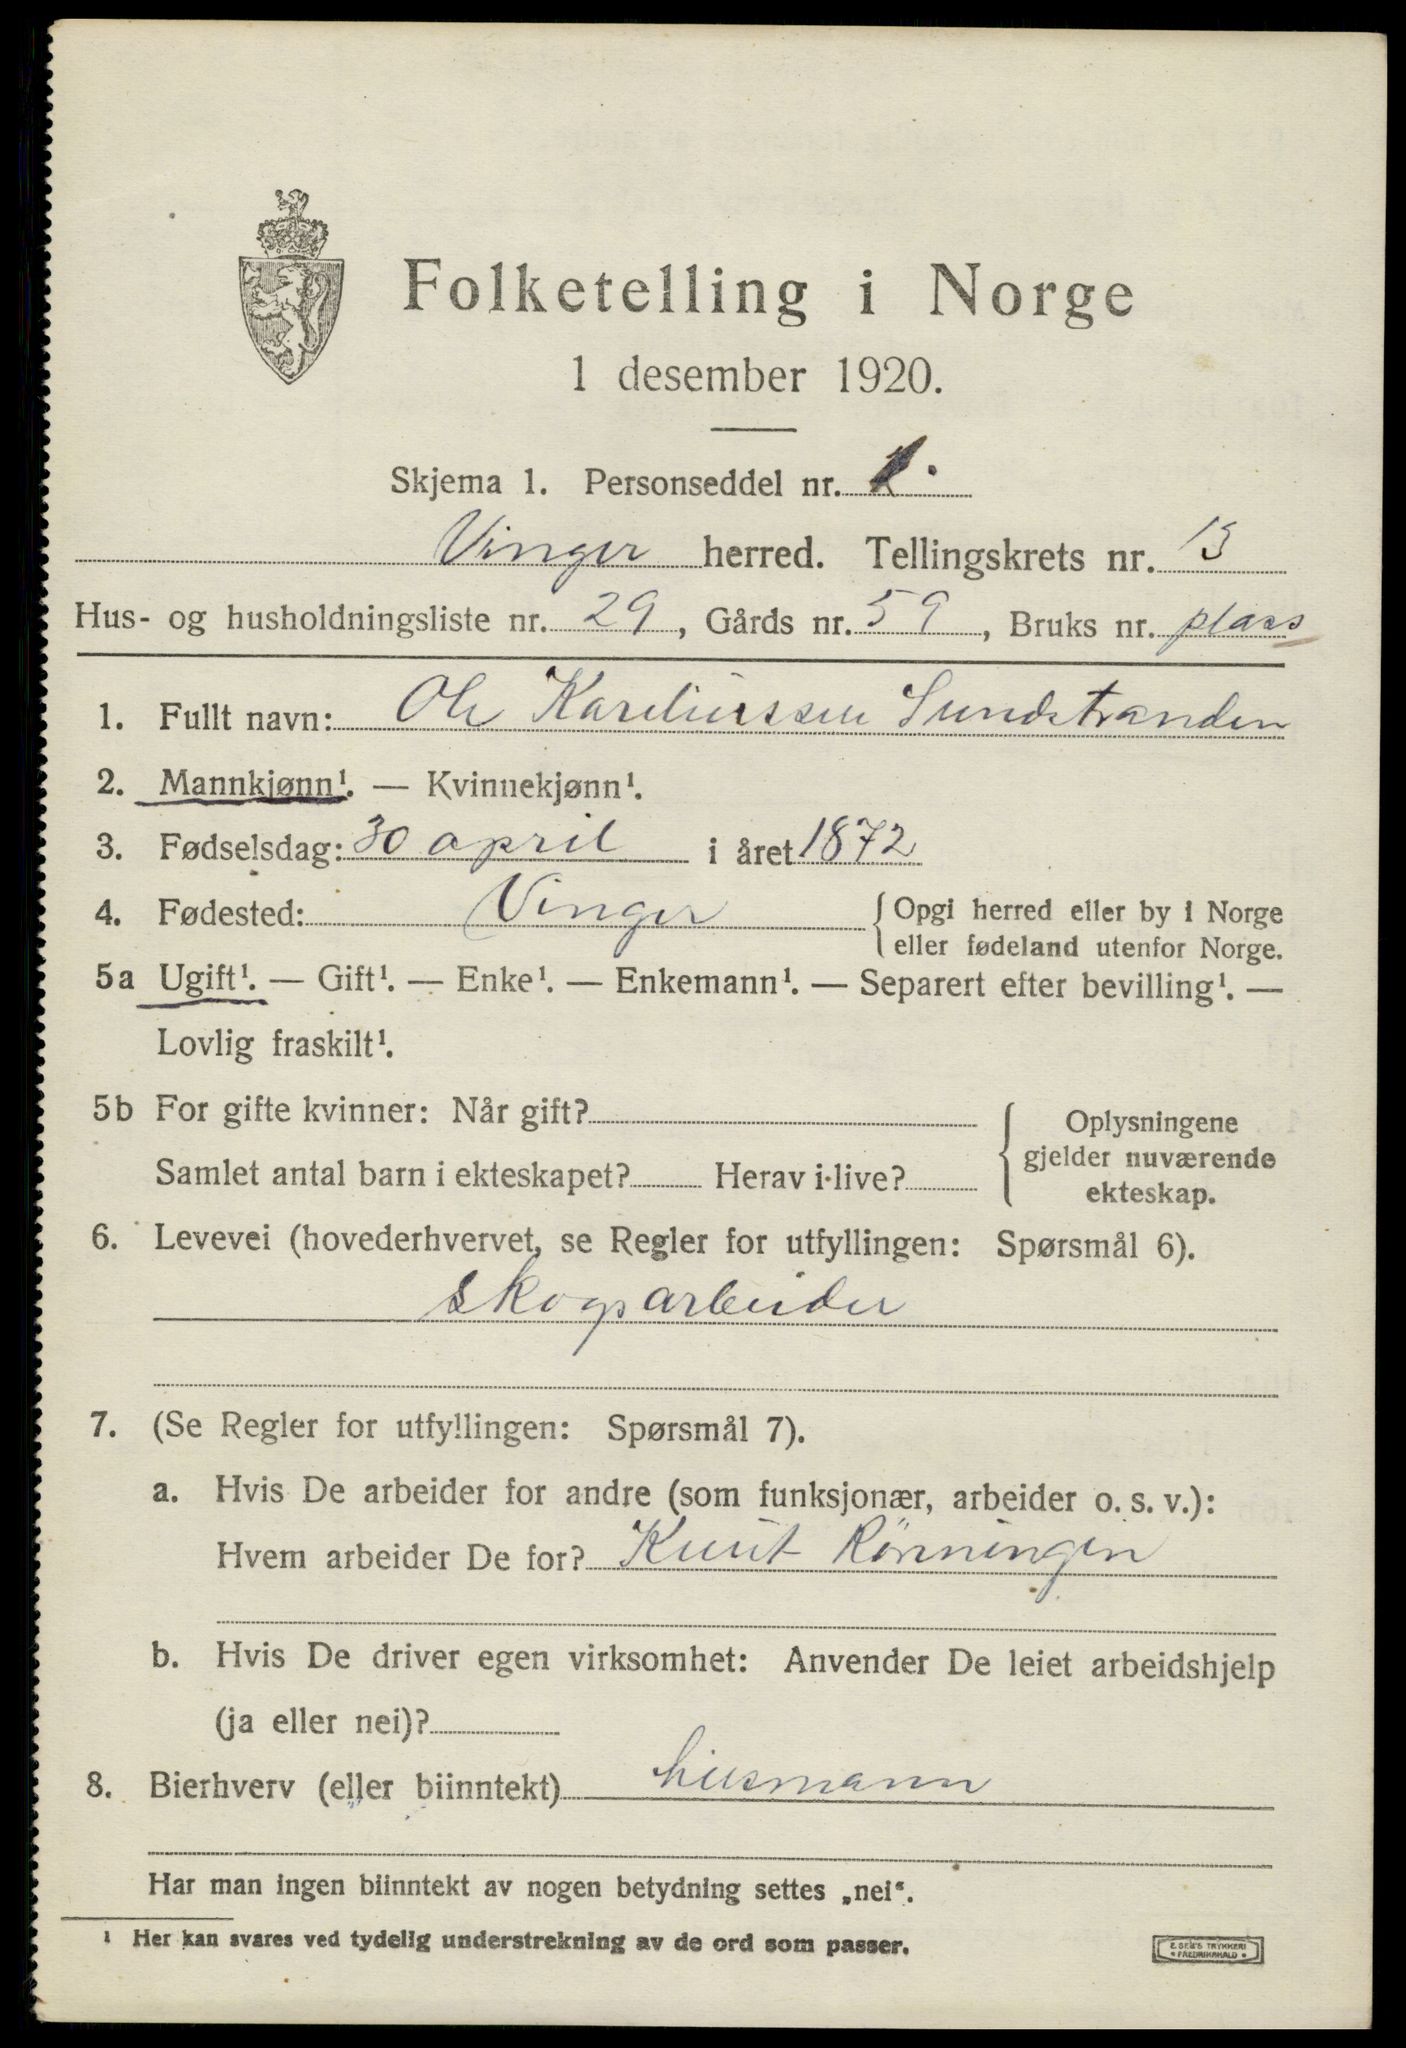 Folketelling i Norge
1 desember 1920.
Skjema 1. Personseddel nr. 1.
Vinger herred. Tellingskrets nr. 13
Hus- og husholdningsliste nr. 29, Gårds nr. 59, Bruks nr. plass
1. Fullt navn: Ole Sundstranden
2. Mannkjønn¹. — Kvinnekjønn¹.
3. Fødselsdag: 30 april i året 1872
4. Fødested: Vinger {Opgi herred eller by i Norge
eller fødeland utenfor Norge.
5a Ugift¹. — Gift¹. — Enke¹. — Enkemann¹. — Separert efter bevilling¹. —
Lovlig fraskilt¹.
5b For gifte kvinner: Når gift?
Samlet antal barn i ekteskapet? Herav i live?
{Oplysningene
gjelder nuværende
ekteskap.
6. Levevei (hovederhvervet, se Regler for utfyllingen: Spørsmål 6).
skogsarbeider
7. (Se Regler for utfyllingen: Spørsmål 7).
a. Hvis De arbeider for andre (som funksjonær, arbeider o. s. v.):
Hvem arbeider De for? Knut Rönningen
b. Hvis De driver egen virksomhet: Anvender De leiet arbeidshjelp
(ja eller nei)?
8. Bierhverv (eller biinntekt) husmann
Har man ingen biinntekt av nogen betydning settes „nei“.
¹ Her kan svares ved tydelig understrekning av de ord som passer.
E. SEM'S TRYKKERI
• FREDRIKSHALD •